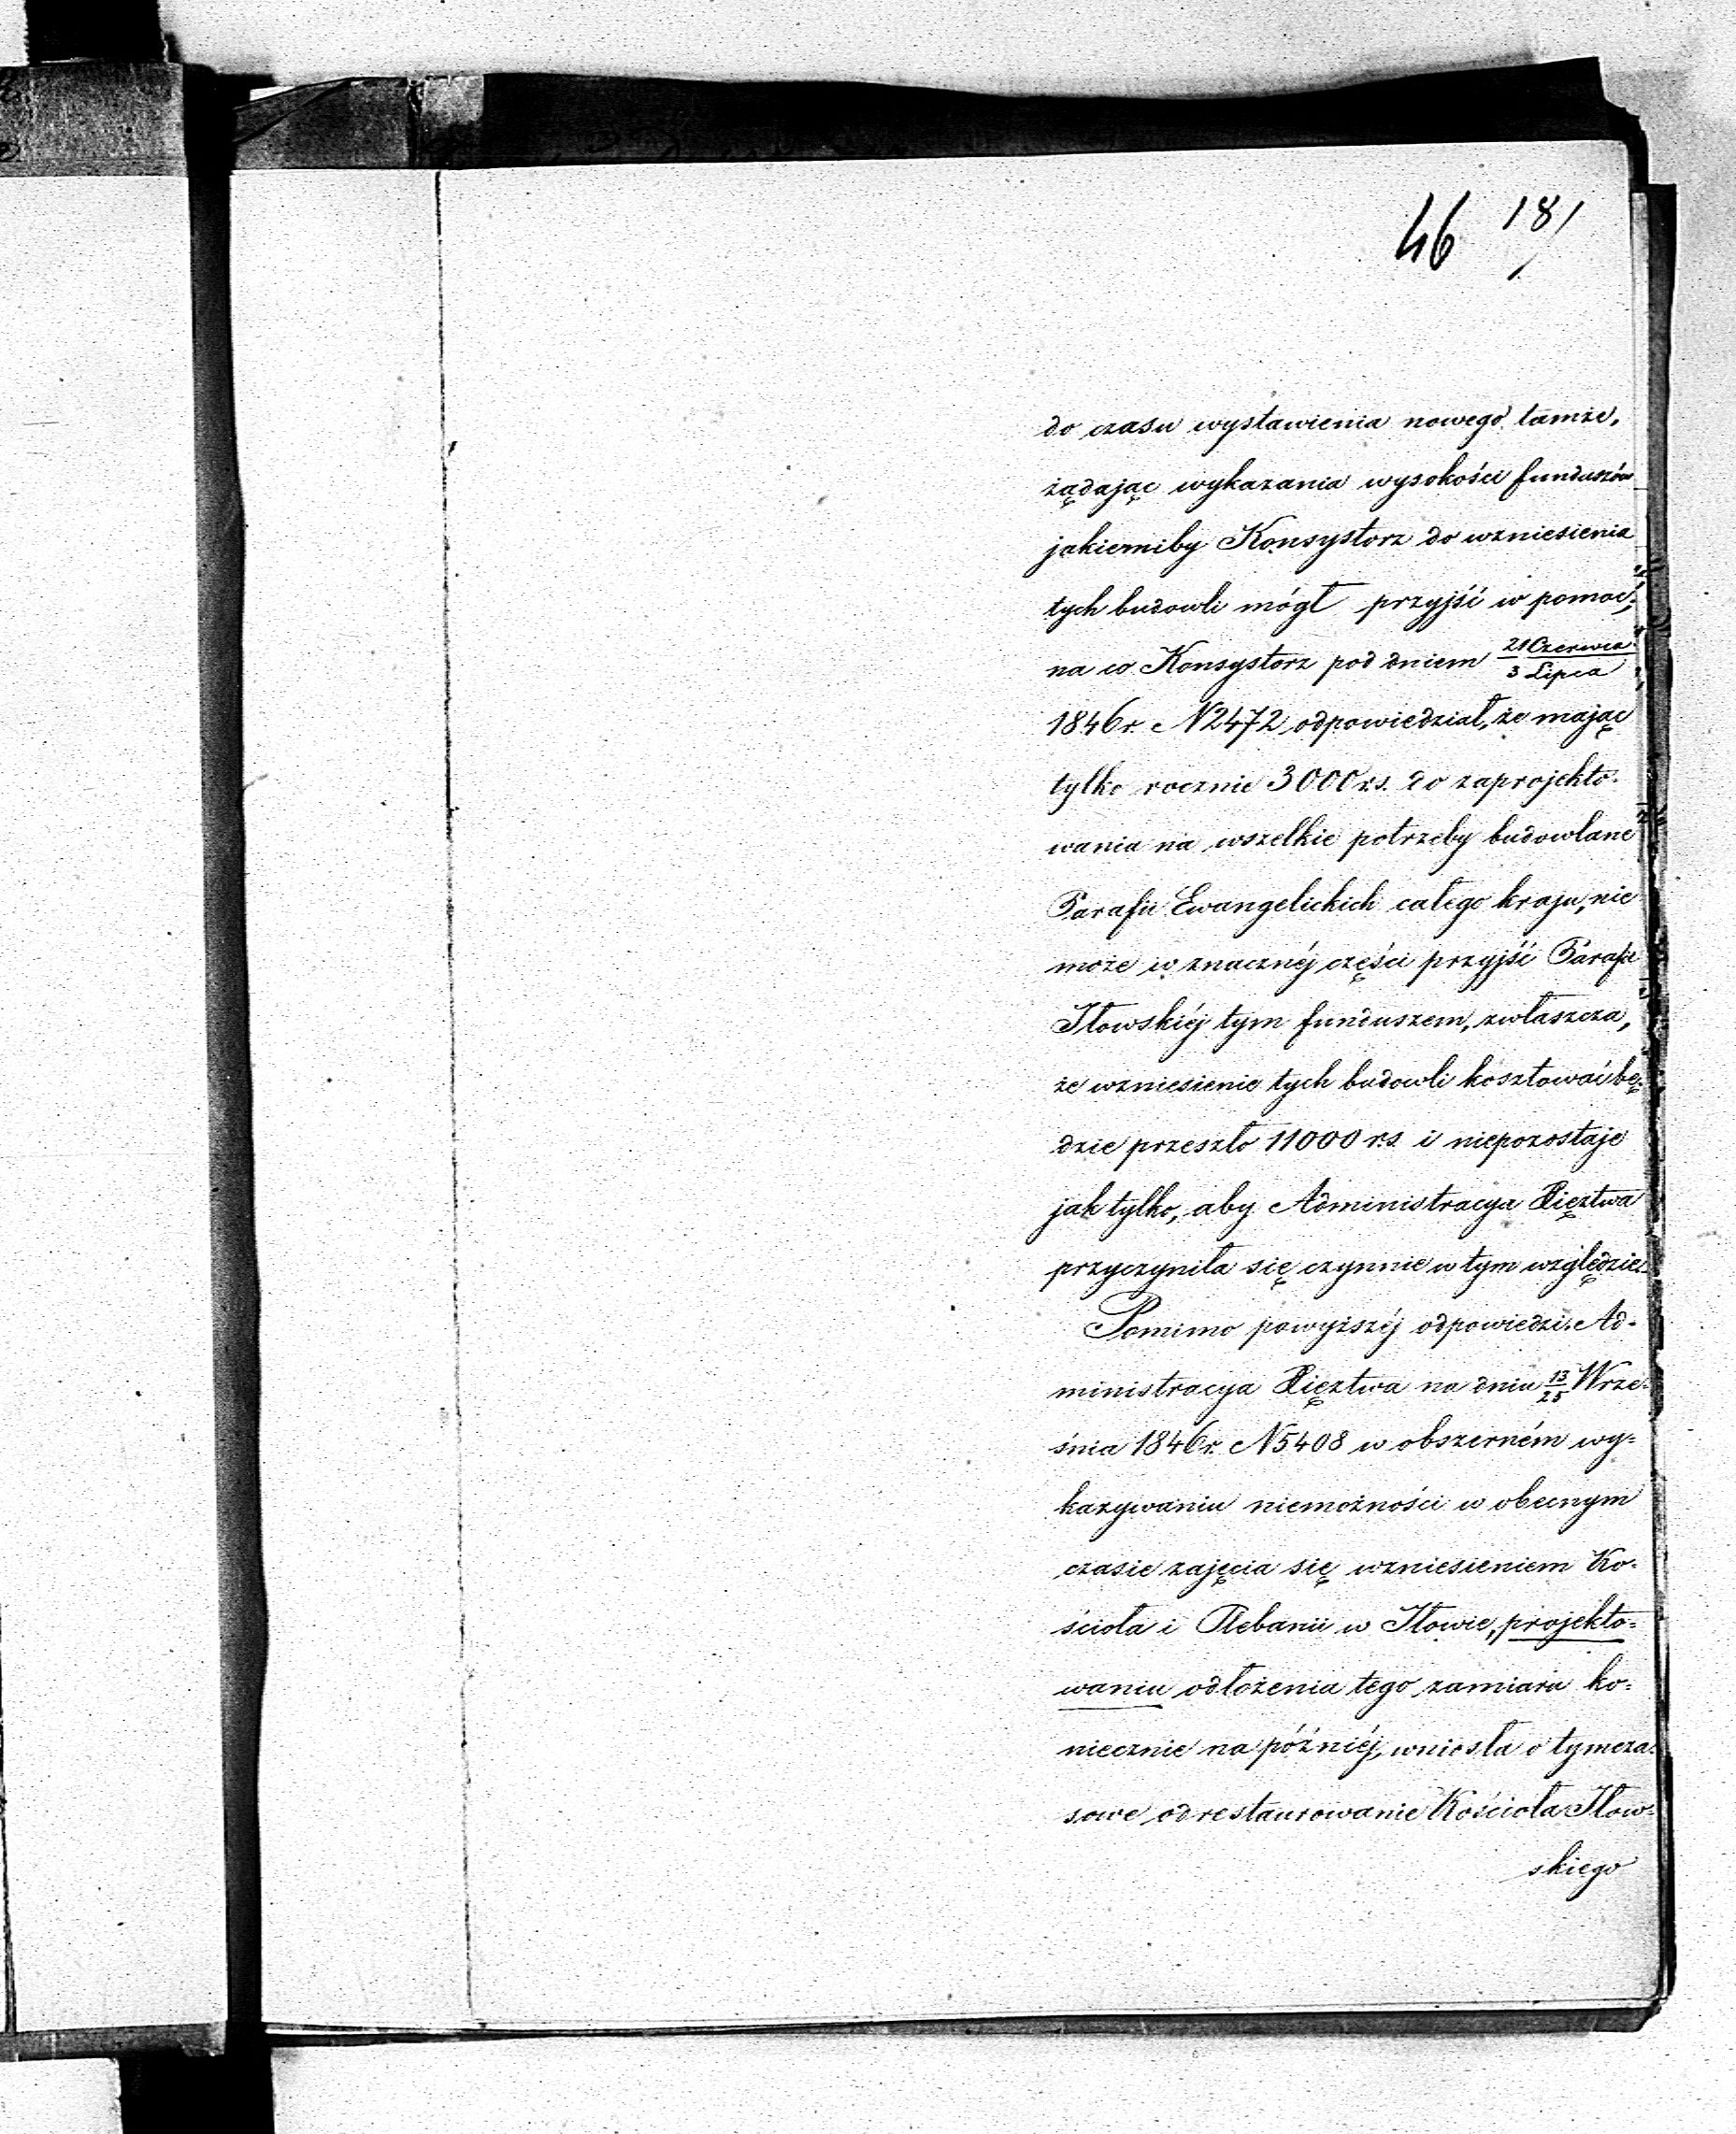 46 181
do czasu wystawienia nowego tamże,
żądając wykazania wysokości funduszów
jakiemiby Konsystorz do wzniesienia
tych budowli mógł przyjść w pomoc;
na co Konsystorz pod dniem 21 Czerwca / 3 Lipca
1846 r. N 2472 odpowiedział, że mając
tylko rocznie 3000 rs. do zaprojekto-
wania na wszelkie potrzeby budowlane
Parafii Ewangelickich całego kraju, nie
może w znacznéj części przyjść Parafii
Iłowskiéj tym funduszem, zwłaszcza,
że wzniesienie tych budowli kosztować bę-
dzie przeszło 11000 rs. i niepozostaje
jak tylko, aby Administracya Xięztwa
przyczyniła się czynnie w tym względzie.
Pomimo powyższéj odpowiedzi Ad-
ministracya Xięztwa na dniu 13/25 Wrze-
śnia 1846 r. N 5408 w obszerném wy=
kazywaniu niemożności w obecnym
czasie zajęcia się wzniesieniem Ko-
ścioła i Plebanii w Iłowie, projekto=
waniu odłożenia tego zamiaru ko=
niecznie na późniéj, wniosła o tymcza-
sowe odrestaurowanie Kościoła Iłow-
skiego